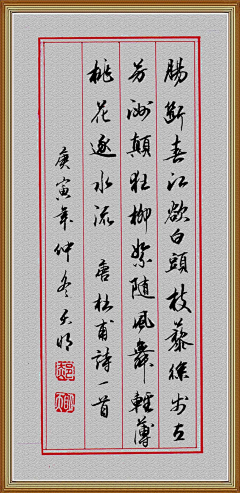 腸斷春江欲白頭杖藜徐步立
芳洲顛狂柳絮隨風舞輕薄
桃花逐水流 唐杜甫詩一首
庚寅年仲冬天明